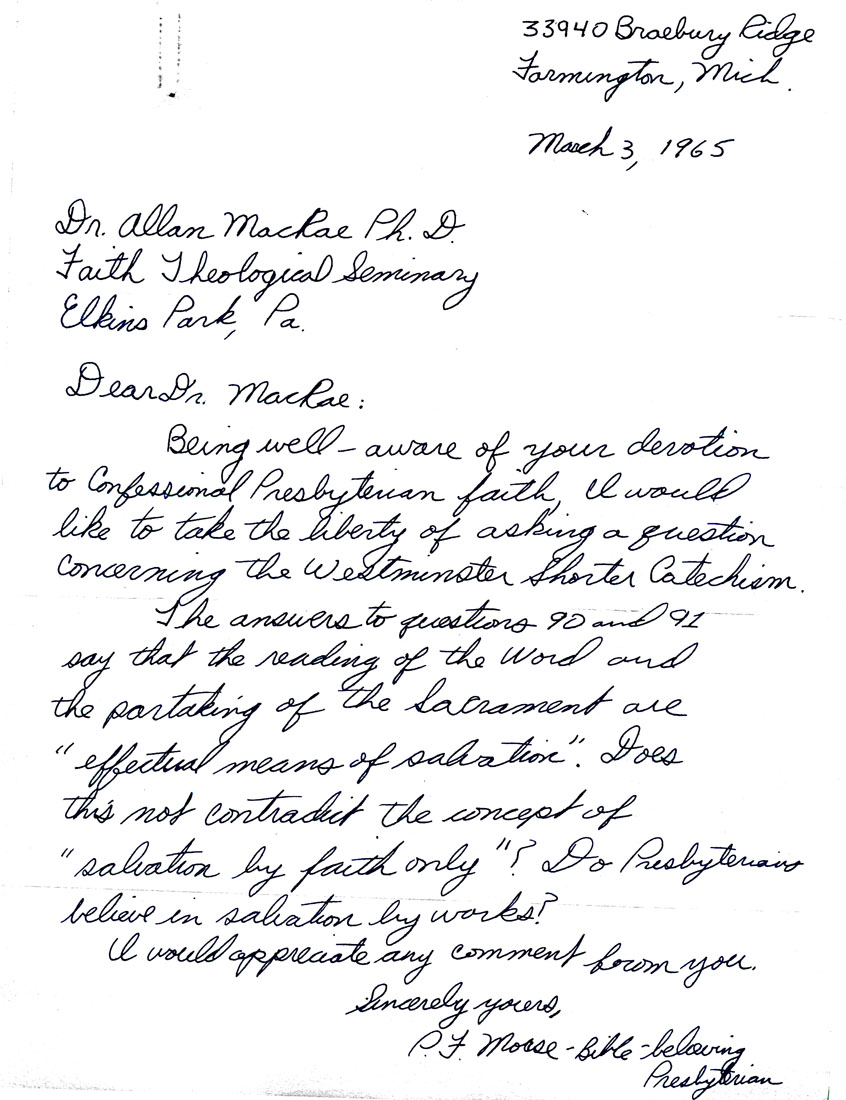 33940 Braebury Ridge
Farmington, Mich.
March 3, 1965
Dr. Allan MacRae Ph. D.
Faith Theological Seminary
Elkins Park, Pa.
Dear Dr. MacRae:
Being well-aware of your devotion
to Confessional Presbyterian faith, I would
like to take the liberty of asking a question
concerning the Westminster Shorter Catechism.
The answers to questions 90 and 91
say that the reading of the Word and
the partaking of the Sacrament are
"effectual means of salvation". Does
this not contradict the concept of
"salvation by faith only"? Do Presbyterians
believe in salvation by works?
I would appreciate any comment from you.
Sincerely yours,
P. F. Morse - Bible-believing
Presbyterian